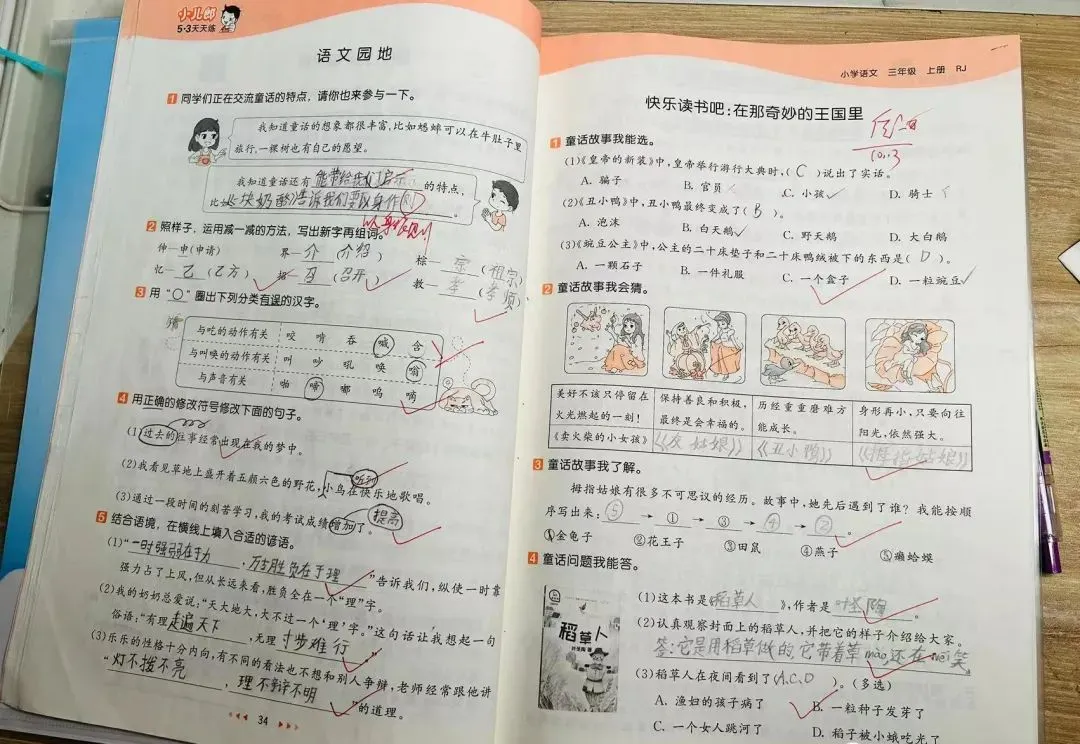 小儿郎
5·3天天练
语文园地
1 同学们正在交流童话的特点，请你也来参与一下。
我知道童话的想象都很丰富，比如蟋蟀可以在牛肚子里
旅行，一棵树也有自己的愿望。
我知道童话还有能带给我们启示的特点，
比如《一块奶酪》告诉我们要以身作则。
以身作则
2 照样子，运用减一减的方法，写出新字再组词。
伸—申(申请) 界—介(介绍) 棕—宗(祖宗)
忆—乙(乙方) 招—召(召开) 教—孝(孝顺)
3 用“○”圈出下列分类有误的汉字。
与吃的动作有关 咬 啃 吞 喊 含
与叫唤的动作有关 叫 吵 吼 唤 嗡
与声音有关 啪 啼 嘟 呜 嘀
4 用正确的修改符号修改下面的句子。
(1)过去的往事经常出现在我的梦中。
(2)我看见草地上盛开着五颜六色的野花，小鸟在快乐地歌唱。
听到
(3)通过一段时间的刻苦学习，我的考试成绩增加了。
提高
5 结合语境，在横线上填入合适的谚语。
(1)“一时强弱在于力，万古胜负在于理”告诉我们，纵使一时靠
强力占了上风，但从长远来看，胜负全在一个“理”字。
(2)我的奶奶总爱说：“天大地大，大不过一个‘理’字。”这句话让我想起一句
俗语：“有理走遍天下，无理寸步难行”
(3)乐乐的性格十分内向，有不同的看法也不想和别人争辩，老师经常跟他讲
“灯不拨不亮，理不辩不明”的道理。
34
小学语文 三年级 上册 RJ
快乐读书吧：在那奇妙的王国里
10.13
1 童话故事我能选。
(1)《皇帝的新装》中，皇帝举行游行大典时，(C)说出了实话。
A. 骗子 B. 官员 C. 小孩 D. 骑士
(2)《丑小鸭》中，丑小鸭最终变成了(B)。
A. 泡沫 B. 白天鹅 C. 野天鹅 D. 大白鹅
(3)《豌豆公主》中，公主的二十床垫子和二十床鸭绒被下的东西是(D)。
A. 一颗石子 B. 一件礼服 C. 一个盒子 D. 一粒豌豆
2 童话故事我会猜。
美好不该只停留在火光燃起的一刻！ 保持善良和积极，最终是会幸福的。 历经重重磨难方能成长。 身形再小，只要向往阳光，依然强大。
《卖火柴的小女孩》 《灰姑娘》 《丑小鸭》 《拇指姑娘》
3 童话故事我了解。
拇指姑娘有很多不可思议的经历。故事中，她先后遇到了谁？我能按顺
序写出来：⑤→①→③→④→②。
①金龟子 ②花王子 ③田鼠 ④燕子 ⑤癞蛤蟆
4 童话问题我能答。
稻草人
(1)这本书是《稻草人》，作者是叶圣陶。
(2)认真观察封面上的稻草人，并把它的样子介绍给大家。
答：它是用稻草做的，它带着草mào，还在wēi笑
(3)稻草人在夜间看到了(A、C、D)。(多选)
A. 渔妇的孩子病了 B. 一粒种子发芽了
C. 一个女人跳河了 D. 稻子被小蛾吃光了